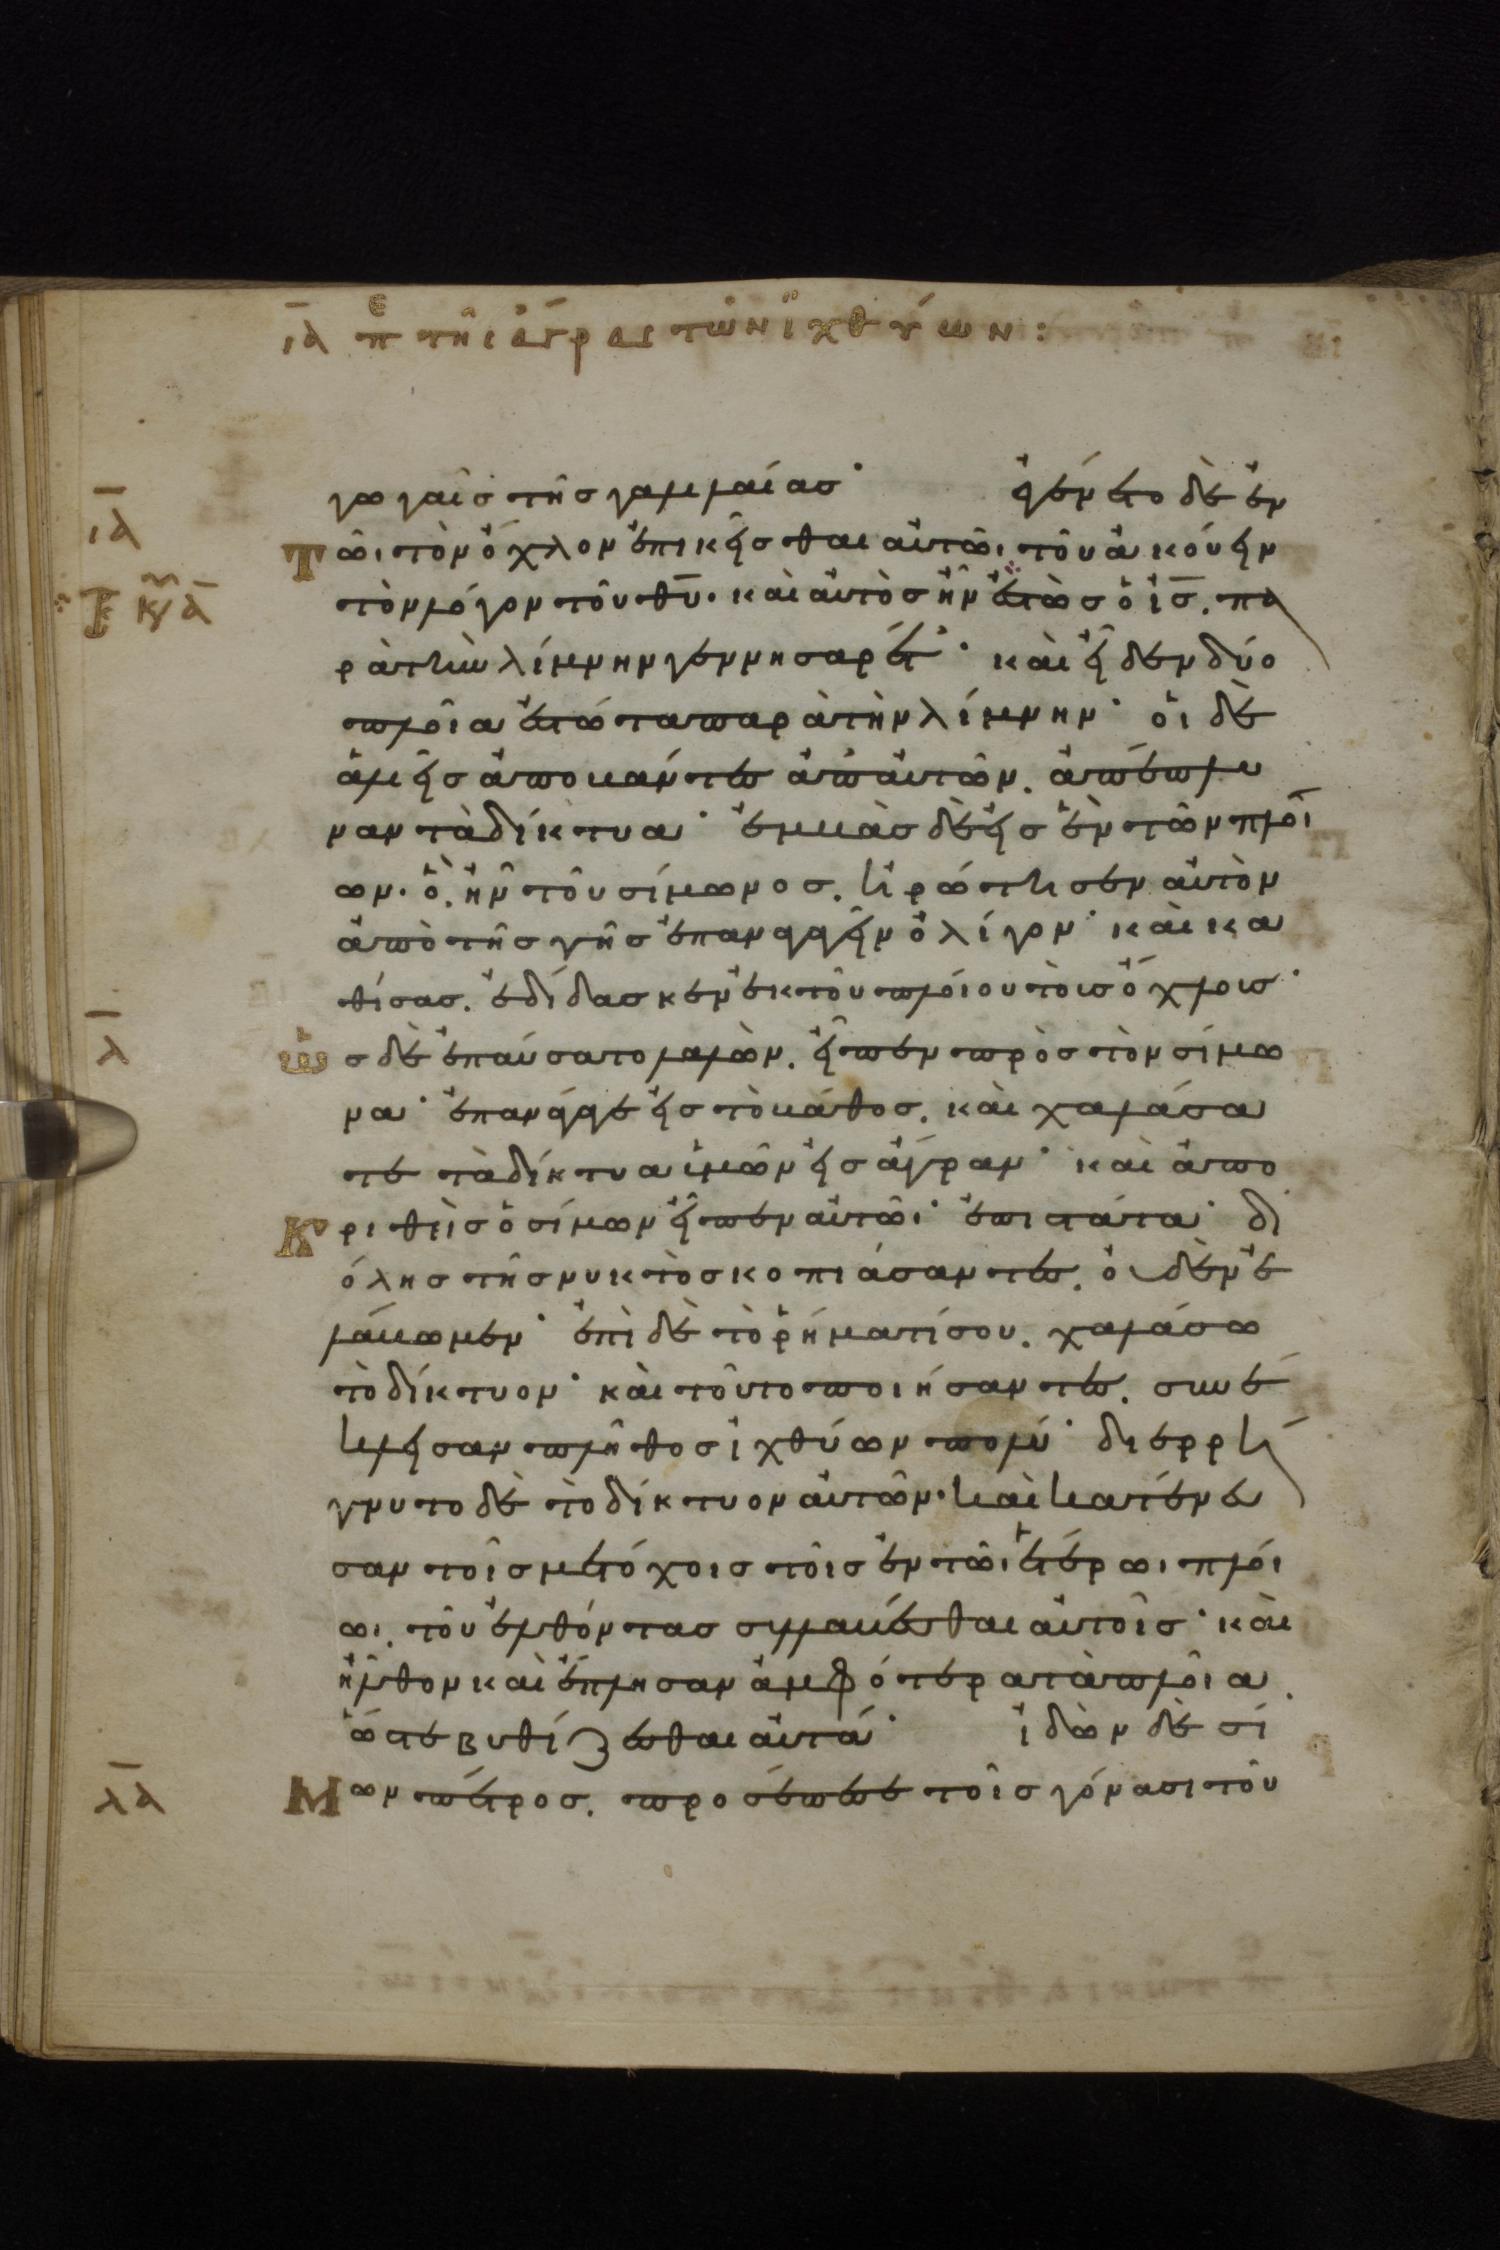 ιδ πε τῆς ἄγρας τῶν ἰχθύων:
γωγαῖς τῆς γαλιλαίας· ἐγένετο δὲ ἐν
ιδ
Τῶι τὸν ὄχλον ἐπικεῖσθαι αὐτῶι τοῦ ἀκούειν
κυ α
τὸν λόγον τοῦ θυ. καὶ αὐτὸς ἦν ἑστὼς ὁ ισ. πα
ρὰ τὴν λίμνην γεννησαρέτ· καὶ εἶδεν δύο
πλοῖα ἑστῶτα παρὰ τὴν λίμνην· οἱ δὲ
ἁλιεῖς ἀποβάντες ἀπ' αὐτῶν. ἀπέπλυ
ναν τὰ δίκτυα· ἐμβὰς δὲ εἰς ἓν τῶν πλοί
ων. ὃ, ἦν τοῦ σίμωνος. ἠρώτησεν αὐτὸν
ἀπὸ τῆς γῆς ἐπαναγαγεῖν ὀλίγον· καὶ κα
θίσας. ἐδίδασκεν ἐκ τοῦ πλοίου τοὺς ὄχλους·
λ
Ὡς δὲ ἐπαύσατο λαλῶν. εἶπεν πρὸς τὸν σίμω
να· ἐπανάγαγε εἰς τὸ βάθος. καὶ χαλάσα
τε τὰ δίκτυα ὑμῶν εἰς ἄγραν· καὶ ἀπο
Κριθεὶς ὁ σίμων εἶπεν αὐτῶι· ἐπιστάτα· δι'
ὅλης τῆς νυκτὸς κοπιάσαντες. οὐδὲν ἐ
λάβομεν· ἐπὶ δὲ τὸ ῥήματί σου. χαλάσω
τὸ δίκτυον· καὶ τοῦτο ποιήσαντες. συνέ
κλεισαν πλῆθος ἰχθύων πολύ· διερρή
γνυτο δὲ τὸ δίκτυον αὐτῶν. καὶ κατένευ
σαν τοῖς μετόχοις τοῖς ἐν τῶι ἑτέρωι πλοί
ωι. τοῦ ἐλθόντας συλλαβέσθαι αὐτοῖς· καὶ
ἦλθον καὶ ἔπλησαν ἀμφότερα τὰ πλοῖα.
ὥστε βυθίζεσθαι αὐτά· ἰδὼν δὲ σί
λα
Μων πέτρος. προσέπεσε τοῖς γόνασι τοῦ